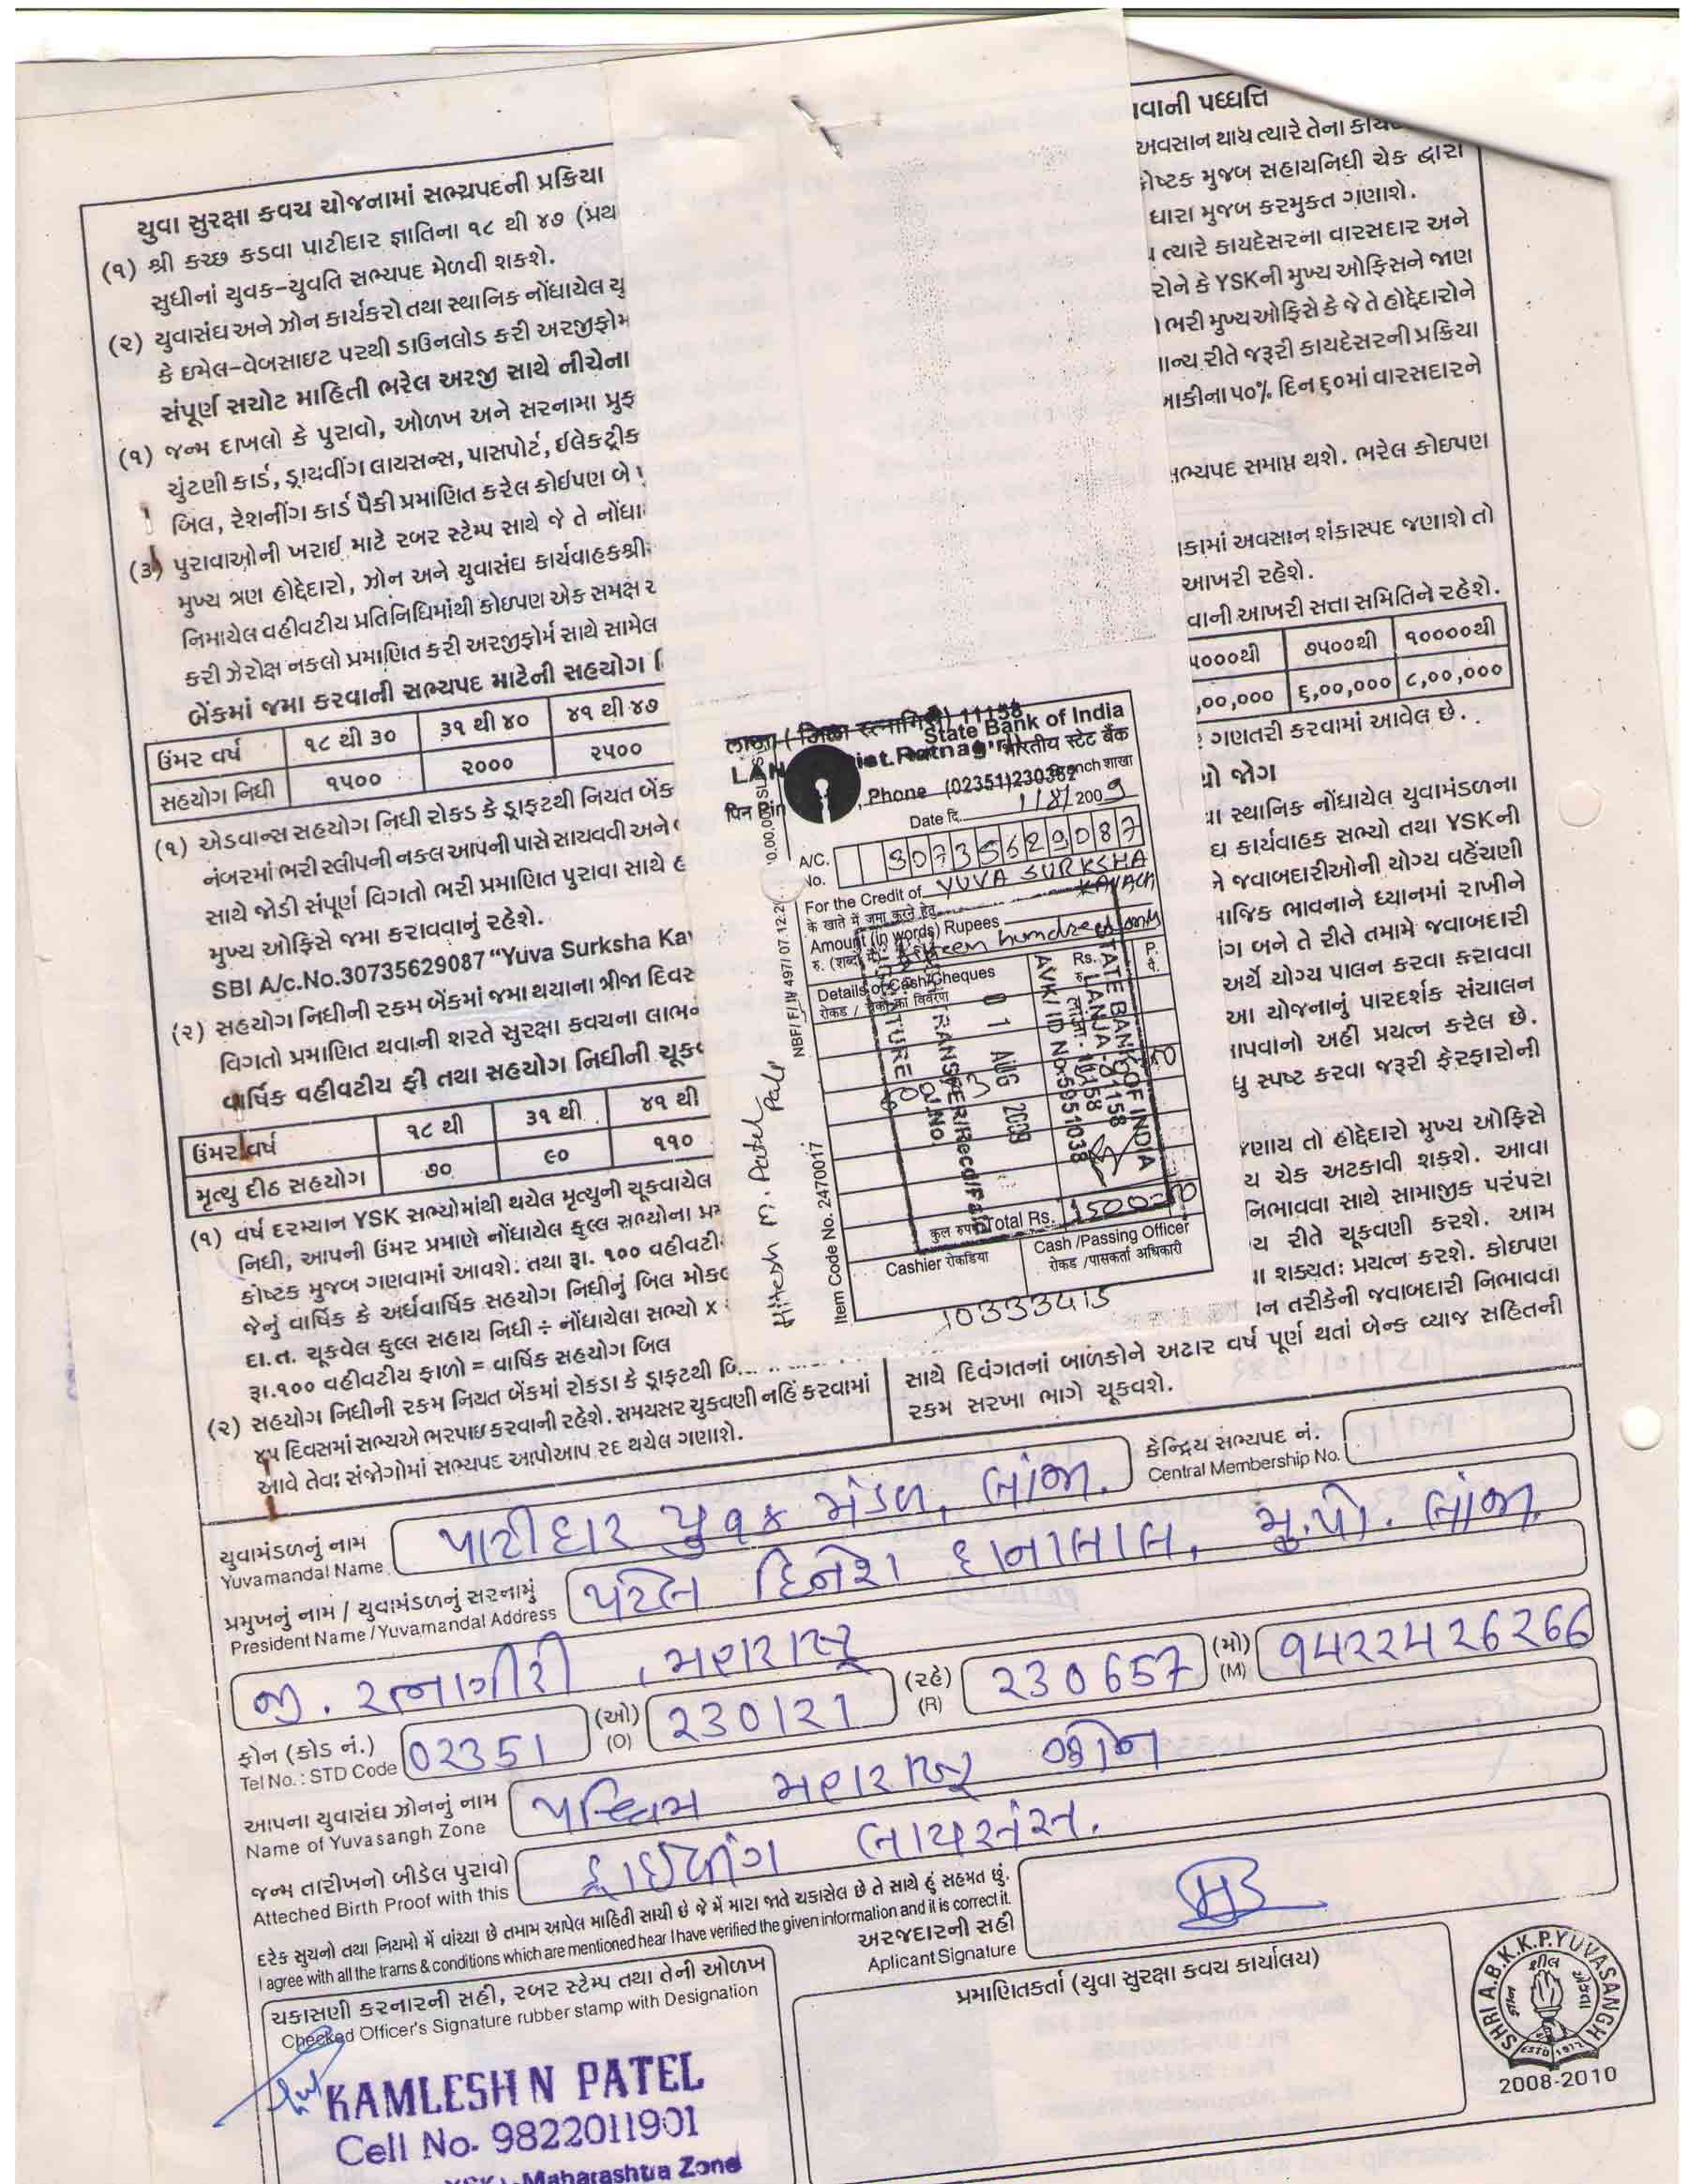 યુવા સુરક્ષા કવચ યોજનામાં સભ્યપદની પ્રક્રિયા
(૧) શ્રી કચ્છ કડવા પાટીદાર જ્ઞાતિના ૧૮ થી ૪૭ (પ્રથ
સુધીનાં યુવક-યુવતિ સભ્યપદ મેળવી શકશે.
(૨) યુવાસંઘ અને ઝોન કાર્યકરો તથા સ્થાનિક નોંધાયેલ યુ
કે ઇમેલ-વેબસાઇટ પરથી ડાઉનલોડ કરી અરજીફોમ
સંપૂર્ણ સચોટ માહિતી ભરેલ અરજી સાથે નીચેના
(૧) જન્મ દાખલો કે પુરાવો, ઓળખ અને સરનામા પ્રુફ
ચુંટણી કાર્ડ, ડ્રાયવીંગ લાયસન્સ, પાસપોર્ટ, ઈલેક્ટ્રીક
બિલ, રેશનીંગ કાર્ડ પૈકી પ્રમાણિત કરેલ કોઈપણ બે
(૩) પુરાવાઓની ખરાઈ માટે રબર સ્ટેમ્પ સાથે જે તે નોંધા
મુખ્ય ત્રણ હોદ્દેદારો, ઝોન અને યુવાસંઘ કાર્યવાહકશ્રી
નિમાયેલ વહીવટીય પ્રતિનિધિમાંથી કોઇપણ એક સમક્ષ ર
કરી ઝેરોક્ષ નકલો પ્રમાણિત કરી અરજીફોર્મ સાથે સામેલ
બેંકમાં જમા કરવાની સભ્યપદ માટેની સહયોગ
ઉંમર વર્ષ ૧૮ થી ૩૦ ૩૧ થી ૪૦ ૪૧ થી ૪૭
સહયોગ નિધી ૧૫૦૦ ૨૦૦૦ ૨૫૦૦
(૧) એડવાન્સ સહયોગ નિધી રોકડ કે ડ્રાફટથી નિયત બેંક
નંબરમાં ભરી સ્લીપની નકલ આપની પાસે સાચવવી અને
સાથે જોડી સંપૂર્ણ વિગતો ભરી પ્રમાણિત પુરાવા સાથે
મુખ્ય ઓફિસે જમા કરાવવાનું રહેશે.
SBI A/c.No.30735629087 "Yuva Surksha Ka
(૨) સહયોગ નિધીની રકમ બેંકમાં જમા થયાના ત્રીજા દિવસ
વિગતો પ્રમાણિત થવાની શરતે સુરક્ષા કવચના લાભ
વાર્ષિક વહીવટીય ફી તથા સહયોગ નિધીની ચૂક
ઉંમર વર્ષ ૧૮ થી ૩૧ થી ૪૧ થી
મૃત્યુ દીઠ સહયોગ ૭૦ ૯૦ ૧૧૦
(૧) વર્ષ દરમ્યાન YSK સભ્યોમાંથી થયેલ મૃત્યુની ચૂકવાયેલ
નિધી, આપની ઉંમર પ્રમાણે નોંધાયેલ કુલ્લ સભ્યોના પ્ર
કોષ્ટક મુજબ ગણવામાં આવશે. તથા રૂા. ૧૦૦ વહીવટી
જેનું વાર્ષિક કે અર્ધવાર્ષિક સહયોગ નિધીનું બિલ મોકલ
દા.ત. ચૂકવેલ કુલ્લ સહાય નિધી ÷ નોંધાયેલા સભ્યો x
રૂા.૧૦૦ વહીવટીય ફાળો = વાર્ષિક સહયોગ બિલ
(૨) સહયોગ નિધીની રકમ નિયત બેંકમાં રોકડા કે ડ્રાફટથી બિ
૪૫ દિવસમાં સભ્યએ ભરપાઇ કરવાની રહેશે. સમયસર ચુકવણી નહિં કરવામાં
આવે તેવા સંજોગોમાં સભ્યપદ આપોઆપ રદ થયેલ ગણાશે.
વાની પધ્ધતિ
અવસાન થાય ત્યારે તેના
કોષ્ટક મુજબ સહાયનિધી ચેક દ્વારા
ધારા મુજબ કરમુકત ગણાશે.
ત્યારે કાયદેસરના વારસદાર અને
રોને કે YSKની મુખ્ય ઓફિસને જાણ
ભરી મુખ્ય ઓફિસે કે જે તે હોદ્દેદારોને
માન્ય રીતે જરૂરી કાયદેસરની પ્રક્રિયા
બાકીના ૫૦% દિન ૬૦માં વારસદારને
સભ્યપદ સમાપ્ત થશે. ભરેલ કોઇપણ
કામાં અવસાન શંકાસ્પદ જણાશે તો
આખરી રહેશે.
વાની આખરી સત્તા સમિતિને રહેશે.
૫૦૦૦થી ૭૫૦૦થી ૧૦૦૦૦થી
,૦૦,૦૦૦ ૬,૦૦,૦૦૦ ૮,૦૦,૦૦૦
ગણતરી કરવામાં આવેલ છે.
યો જોગ
સ્થાનિક નોંધાયેલ યુવામંડળના
ઘ કાર્યવાહક સભ્યો તથા YSKની
ને જવાબદારીઓની યોગ્ય વહેંચણી
માજિક ભાવનાને ધ્યાનમાં રાખીને
ગ બને તે રીતે તમામે જવાબદારી
અર્થે યોગ્ય પાલન કરવા કરાવવા
આ યોજનાનું પારદર્શક સંચાલન
આપવાનો અહી પ્રયત્ન કરેલ છે.
ધુ સ્પષ્ટ કરવા જરૂરી ફેરફારોની
જણાય તો હોદ્દેદારો મુખ્ય ઓફિસે
ય ચેક અટકાવી શકશે. આવા
નિભાવવા સાથે સામાજીક પરંપરા
ય રીતે ચૂકવણી કરશે. આમ
શક્યતઃ પ્રયત્ન કરશે. કોઇપણ
ન તરીકેની જવાબદારી નિભાવવા
સાથે દિવંગતનાં બાળકોને અઢાર વર્ષ પૂર્ણ થતાં બેન્ક વ્યાજ સહિતની
રકમ સરખા ભાગે ચૂકવશે.
लांजा ( जिला रत्नागिरी) 11158
State Bank of India
भारतीय स्टेट बैंक
Dist.Ratnagiri
पिन Pin
Phone (02351)230382
Branch शाखा
Date दि. 1/8/2009
A/C. No. 30735629087
For the Credit of YUVA SURKSHA KAVACH
के खाते में जमा करने हेतु
Amount (in words) Rupees
fifteen hundred only
Details of Cash/Cheques Rs. P.
रोकड / चेकों का विवरण
STATE BANK OF INDIA
LANJA-01158
लांजा- 11158
AVK/ ID No-5951038
01 AUG 2009
TRANSFER/Recd/Paid
कुल रुपये Total Rs. 1500-00
Cashier रोकडिया
Cash /Passing Officer
रोकड /पासकर्ता अधिकारी
10333415
Hitesh M. Patel
Item Code No. 2470017
કેન્દ્રિય સભ્યપદ નં.
Central Membership No.
યુવામંડળનું નામ
Yuvamandal Name
પાટીદાર યુવક મંડળ, લાંજા.
પ્રમુખનું નામ / યુવામંડળનું સરનામું
President Name / Yuvamandal Address
પટેલ દિનેશ દાનાલાલ, મુ.પો. લાંજા.
જી. રત્નાગીરી, મહારાષ્ટ્ર
ફોન (કોડ નં.) 02351 (ઓ) 230121 (રહે) 230657 (મો) 9422426266
Tel No. : STD Code (O) (R) (M)
આપના યુવાસંઘ ઝોનનું નામ
Name of Yuvasangh Zone
પશ્ચિમ મહારાષ્ટ્ર ઝોન
જન્મ તારીખનો બીડેલ પુરાવો
Atteched Birth Proof with this
ડ્રાઈવીંગ લાયસંસ.
દરેક સુચનો તથા નિયમો મેં વાંચ્યા છે તમામ આપેલ માહિતી સાચી છે જે મેં મારા જાતે ચકાસેલ છે તે સાથે હું સહમત છું.
I agree with all the trams & conditions which are mentioned hear I have verified the given information and it is correct it.
અરજદારની સહી
Aplicant Signature
ચકાસણી કરનારની સહી, રબર સ્ટેમ્પ તથા તેની ઓળખ
Checked Officer's Signature rubber stamp with Designation
KAMLESH N PATEL
Cell No. 9822011901
Maharashtra Zone
પ્રમાણિતકર્તા (યુવા સુરક્ષા કવચ કાર્યાલય)
SHRI A.B.K.K.P.YUVASANGH
2008-2010